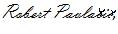 Robert Pavlačič,